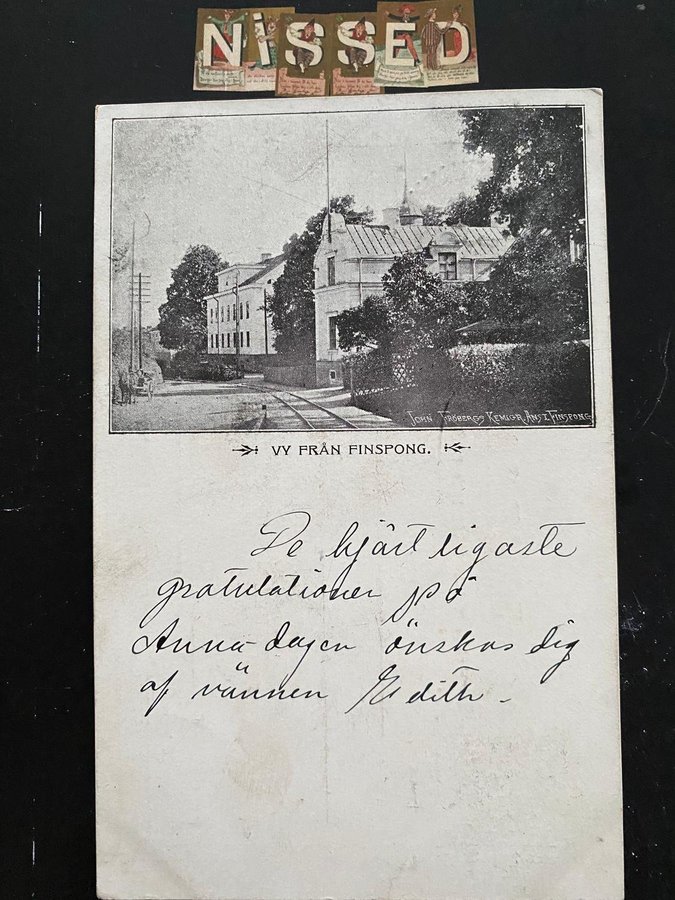 NISSED
JOHN FRÖBERGS KEMIGR. ANST. FINSPONG.
VY FRÅN FINSPONG.
De hjärtligaste
gratulationer på
Anna-dagen önskas dig
af vännen Edith -